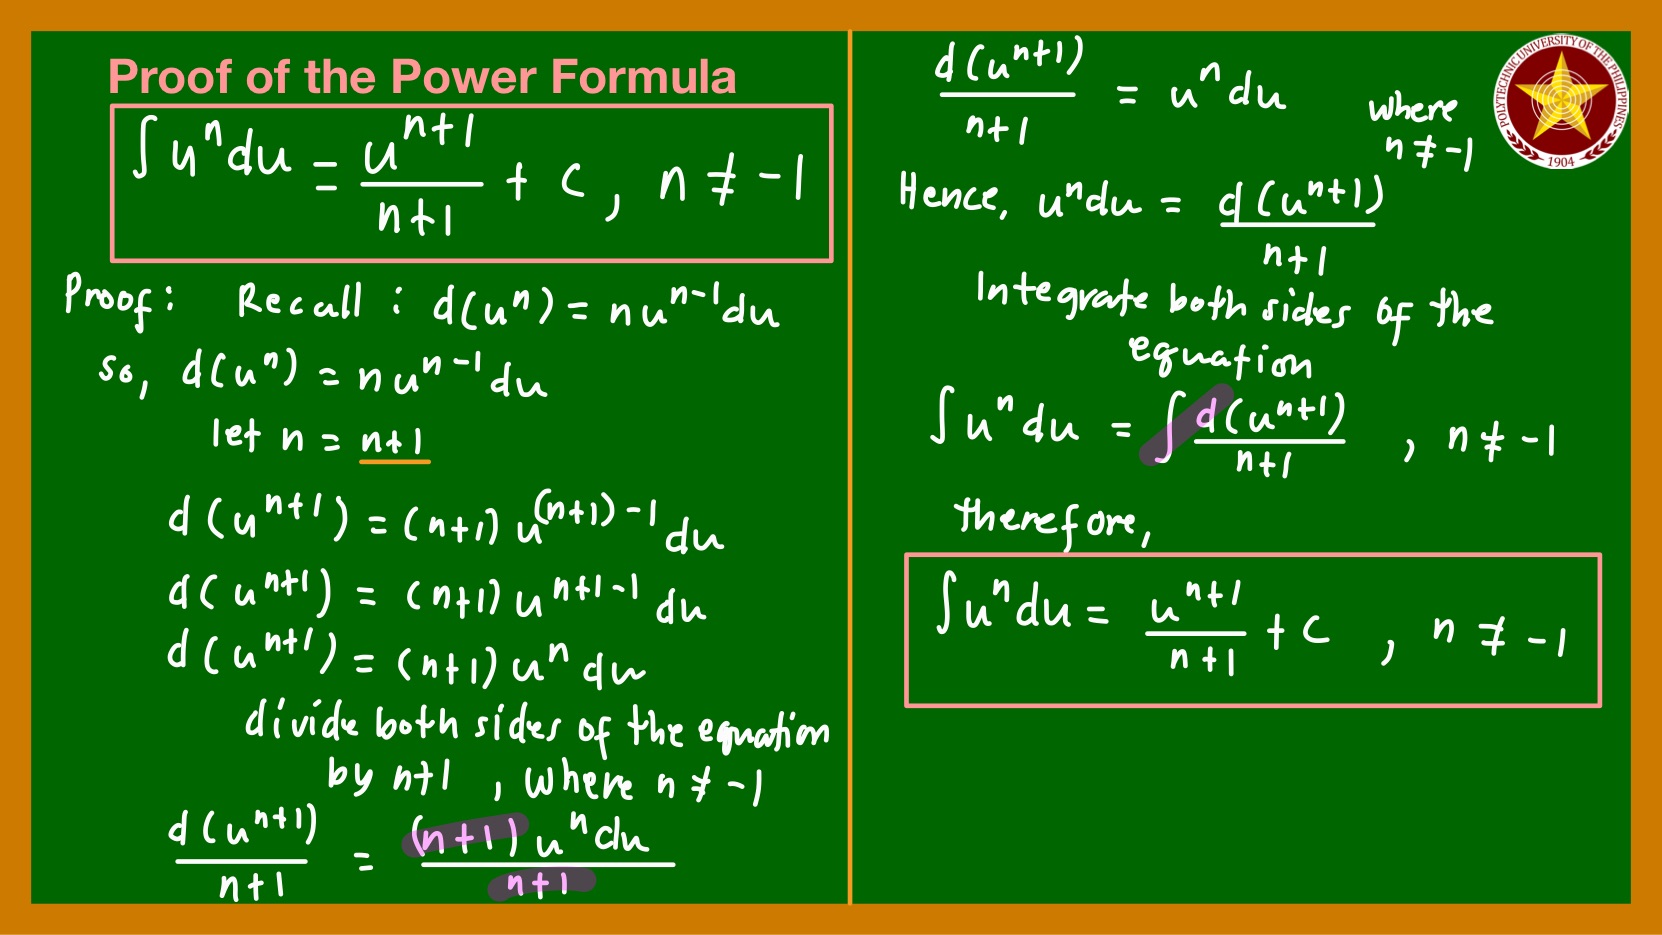 Proof of the Power Formula
∫uⁿdu = uⁿ⁺¹/n+1 + C, n ≠ -1
Proof: Recall: d(uⁿ) = nuⁿ⁻¹du
so, d(uⁿ) = nuⁿ⁻¹du
let n = n+1
d(uⁿ⁺¹) = (n+1)u⁽ⁿ⁺¹⁾⁻¹du
d(uⁿ⁺¹) = (n+1)uⁿ⁺¹⁻¹du
d(uⁿ⁺¹) = (n+1)uⁿdu
divide both sides of the equation
by n+1, where n ≠ -1
d(uⁿ⁺¹)/n+1 = (n+1)uⁿdu/n+1
d(uⁿ⁺¹)/n+1 = uⁿdu
where
n ≠ -1
Hence, uⁿdu = d(uⁿ⁺¹)/n+1
Integrate both sides of the
equation
∫uⁿdu = ∫d(uⁿ⁺¹)/n+1, n ≠ -1
therefore,
∫uⁿdu = uⁿ⁺¹/n+1 + C, n ≠ -1
POLYTECHNIC UNIVERSITY OF THE PHILIPPINES
1904